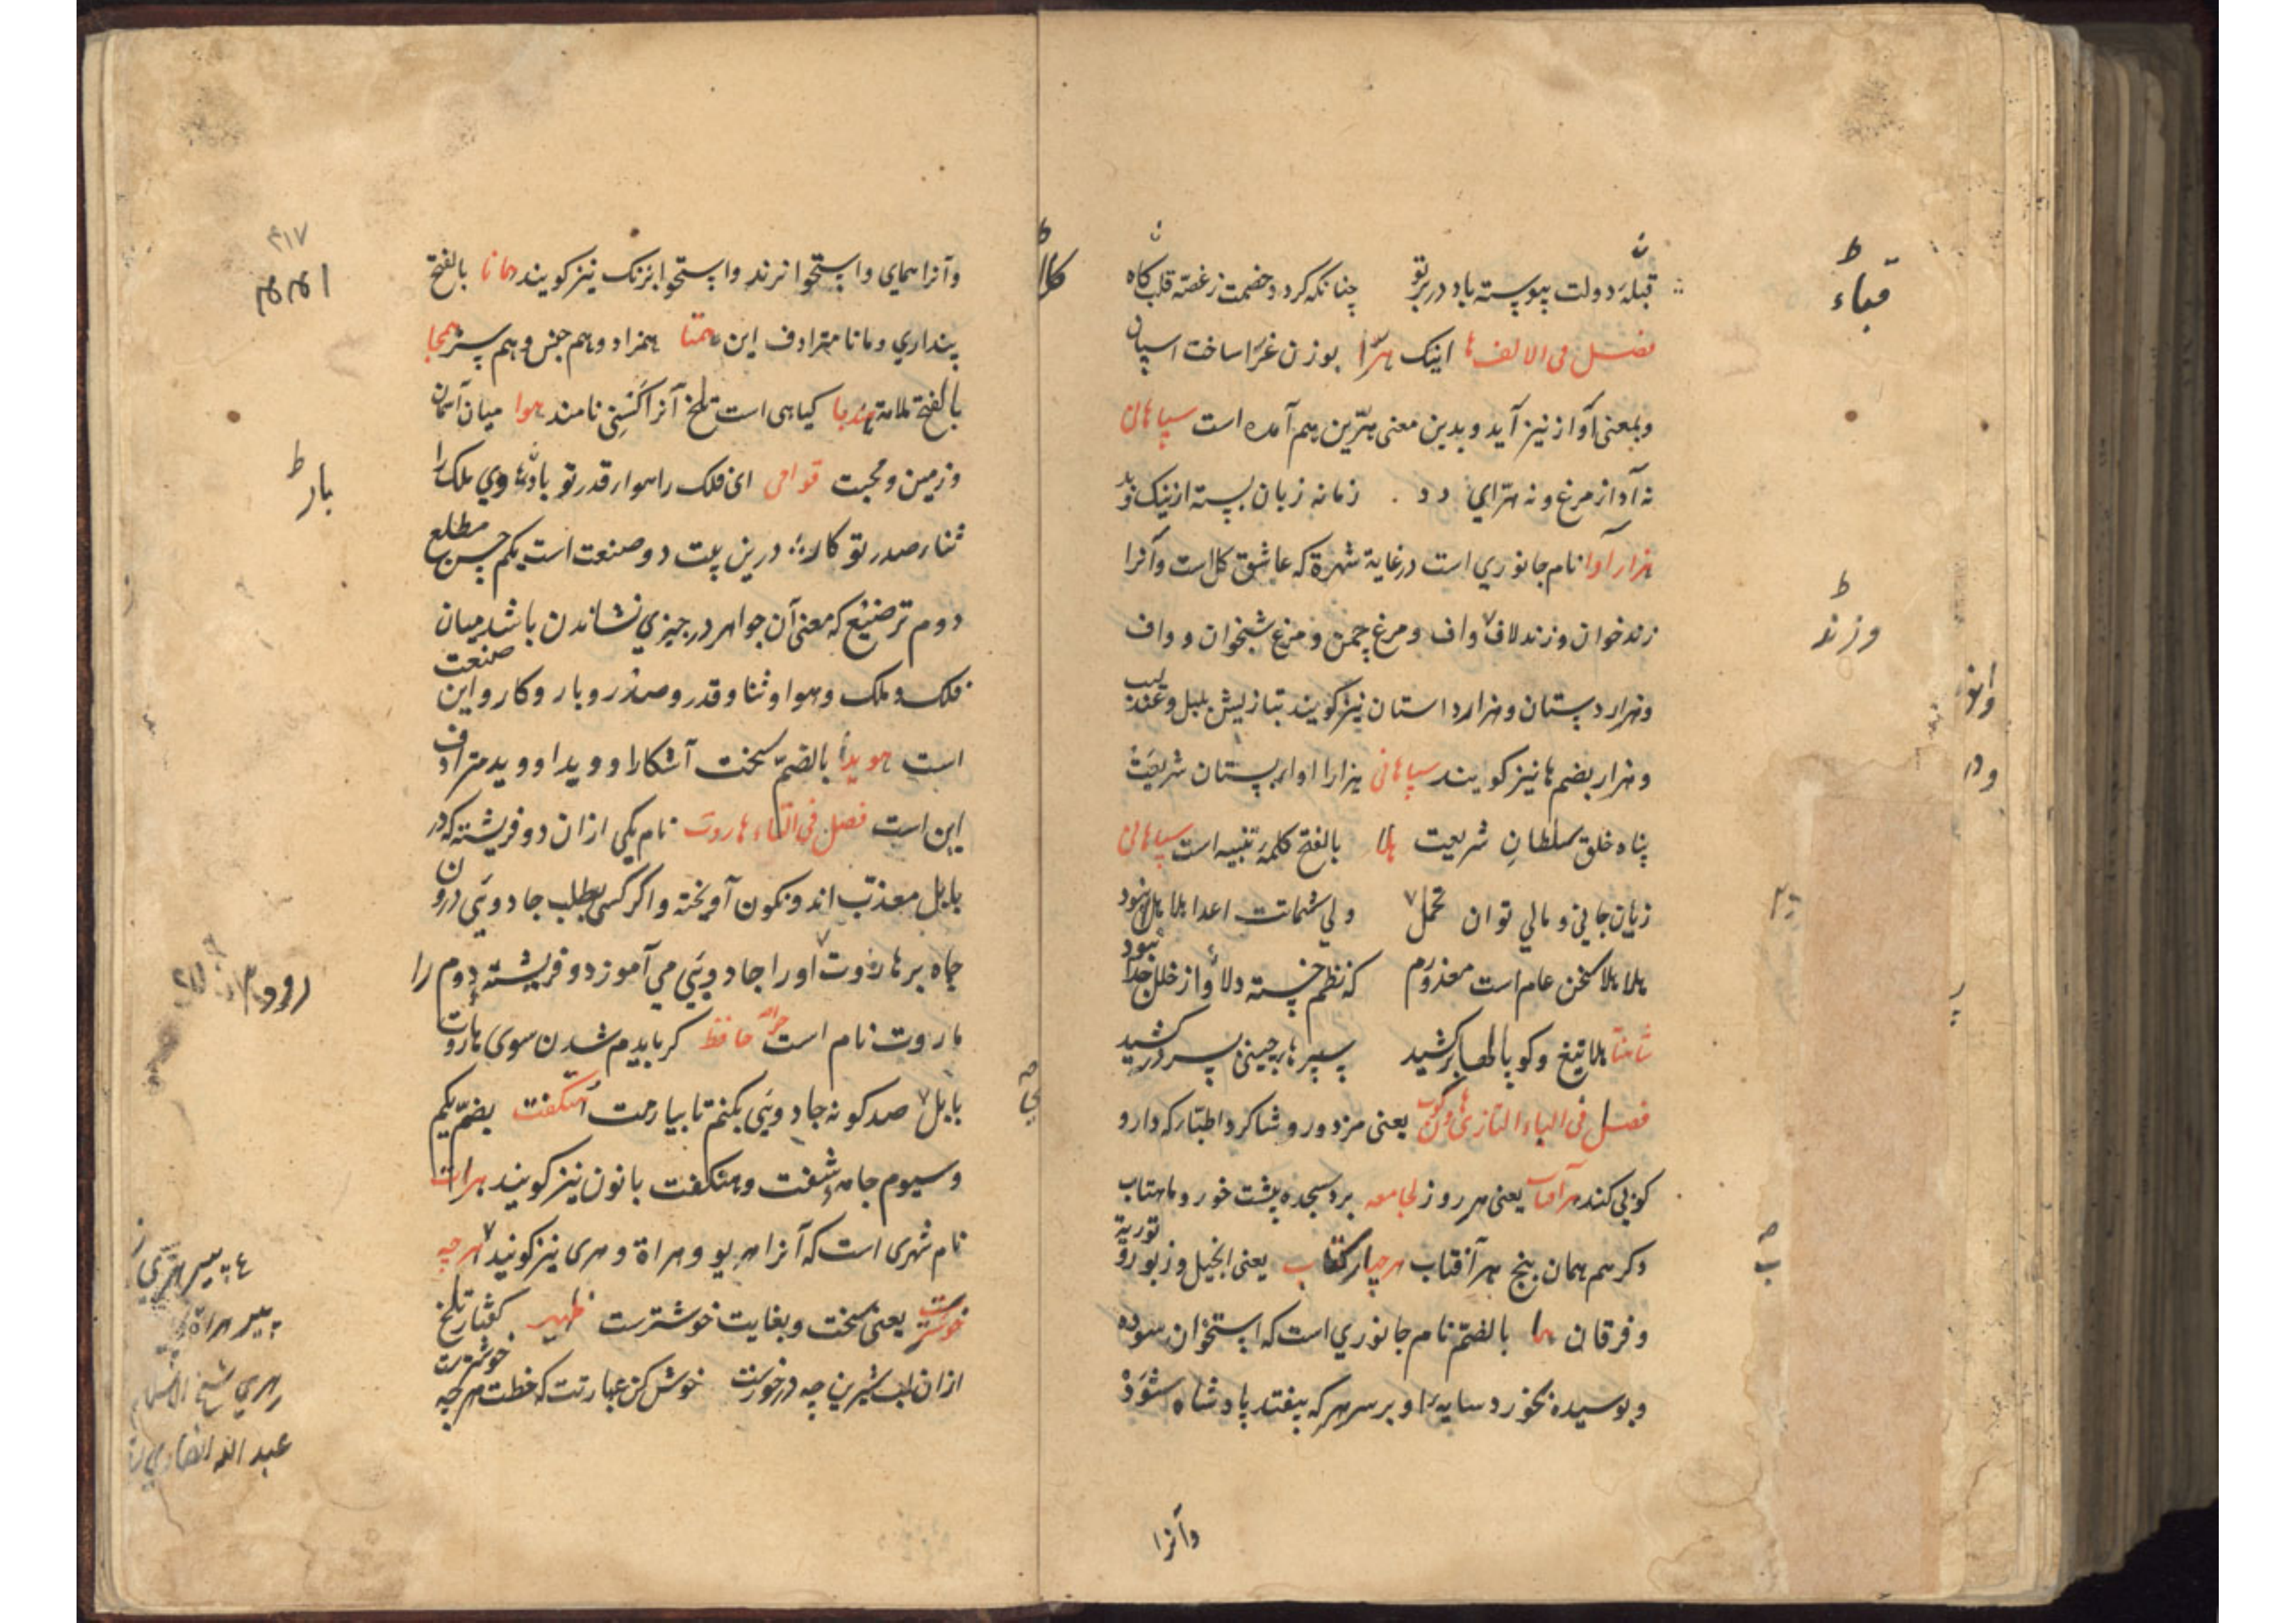 قبلهٔ دولت پیوسته باد در بر تو چنانکه کرد و خصمت ز غصه قلب کاه
فصل فی الالف ها اینک هرّا بوزن غرّا ساخت اسپان
وبمعنی آواز نیز آید و بدین معنی هرّین هم آمده است سپاهان
نه آواز مرغ و نه هرّای دد زمانه زبان بسته از نیک و بد
هزار آوا نام جانوری است در غایة شهرة که عاشق کل است و آنرا
زند خوان و زند لاف و واف و مرغ چمن و مرغ شبخوان و واف
و هزار دستان و هزار داستان نیز کویند بتازیش بلبل و عندلیب
و هزار بضم ها نیز کویند سپاهانی هزارا اوا بستان شریعت
پناه خلق سلطان شریعت هلا بالفتح کلمهٔ تنبیه است سپاهانی
زیان جانی و مالی توان تحمل ولی شماتت اعدا هلاهل نبود
هلا هلا سخن عام است معذورم که نظم خسته دلا و از خلل جدا نبود
هلا تیغ و کوپالها برکشید سپرهای چینی بسر درکشید
فصل فی الباء التازی هاون کوب یعنی مزدور و شاکرد اطبا که دارو
کوبی کند هر آفتاب یعنی هر روز لجامعه برد سجده پیشت خور و ماهتاب
دکر هم همان پنج هر آفتاب هر چهار کتاب یعنی انجیل و زبور و توریة
و فرقان هما بالضم نام جانوری است که استخوان سوده
و بوسیده بخورد سایهٔ او بر سر هر که بیفتد پادشاه شود
وآنرا
قباء
وزند
وآنرا همای و استخوانرند و استخوانرنک نیز کویند همانا بالفتح
پنداری و مانا مترادف این همتا همزاد و هم جنس و هم سر هجا
بالفتح ملامة هندبا کیاهی است تلخ آنرا کسنی نامند هوا میان آسمان
و زمین و محبت قوامی ای فلک را هوار قدر تو بار وی ملک را
ثنار صدر تو کار درین بیت دو صنعت است یکم حسن مطلع
دوم ترصیع که معنی آن جواهر در چیزی نشاندن باشد میان
فلک و ملک و هوا و ثنا و قدر و صدر و بار و کار و این صنعت
است هویدا بالضم سخت آشکارا و ویدا و وید مترادف
این است فصل فی التاء هاروت نام یکی از ان دو فرشته که در
بابل معذب اند و نکون آویخته و اکر کسی بطلب جادویی درون
چاه بر هاروت او را جادویی می آموزد و فرشته دوم را
ماروت نام است حافظ کر بایدم شدن سوی هاروت
بابل صد کونه جادویی بکنم تا بیارمت هتکفت بضم یکم
و سیوم جامه شفت و هنکفت با نون نیز کویند هرات
نام شهری است که آنرا هریو و هراة و هری نیز کویند هر چه
خوشتر یعنی سخت و بغایت خوشترست ظهیر کفتار تلخ
از ان لب شیرین چه در خورست خوش کن عبارتت که خطت هر چه خوشترست
بار
پیر هراة
هری شیخ الاسلام
عبد الله انصاری